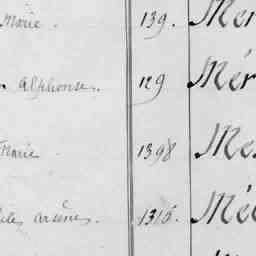 Marie. 139. Mer
Alphonse. 129 Mér
Marie 1398 Me
arsène. 1315. Mé